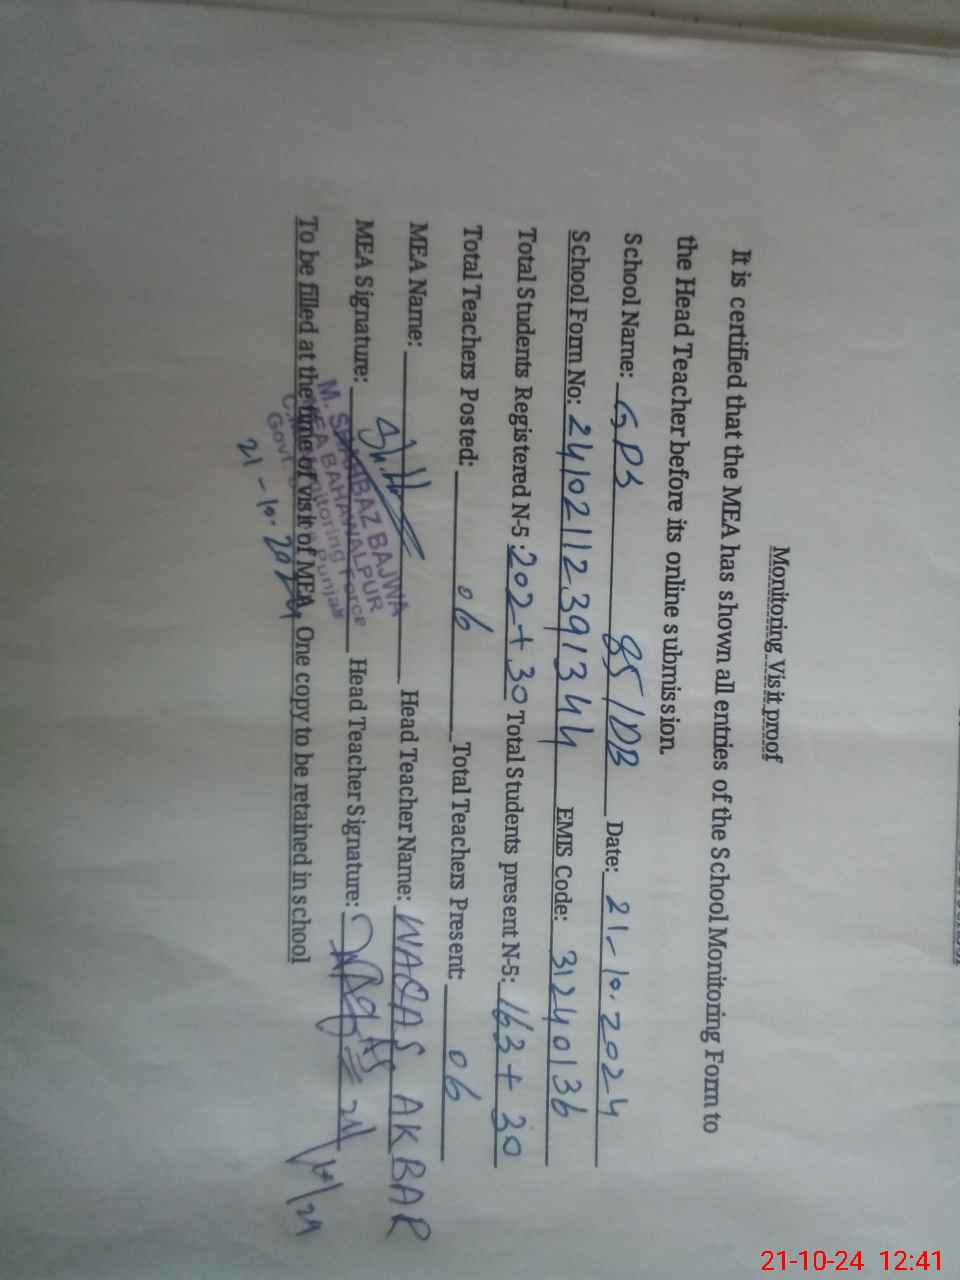 Monitoring Visit proof
It is certified that the MEA has shown all entries of the School Monitoring Form to
the Head Teacher before its online submission.
School Name: GPS 85/DB Date: 21-10-2024
School Form No: 24102112391344 EMIS Code: 31240136
Total Students Registered N-5: 202+30 Total Students present N-5: 163+30
Total Teachers Posted: 06 Total Teachers Present: 06
MEA Name: Head Teacher Name: WAQAS AKBAR
MEA Signature: Head Teacher Signature: Waqas
M. SHAHBAZ BAJWA
MEA BAHAWALPUR
Monitoring Force
Govt. Punjab
To be filled at the time of visit of MEA. One copy to be retained in school
21-10-2024
21-10-24 12:41